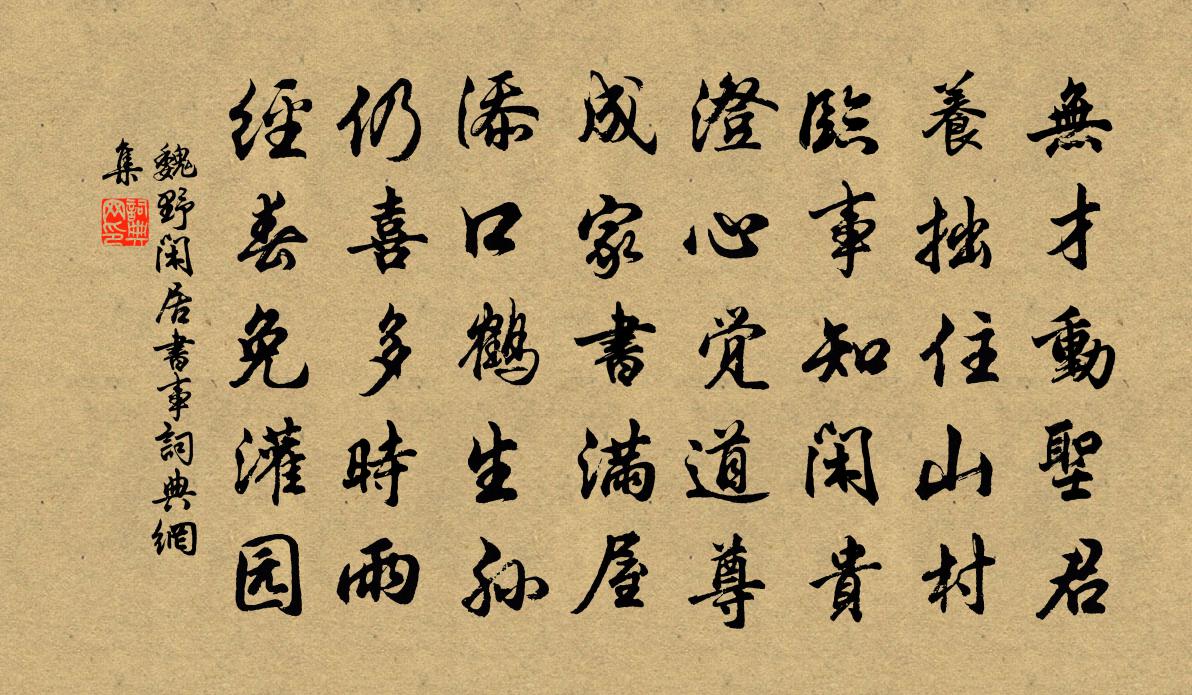 無才動聖君
養拙住山村
臨事知閑貴
澄心覚道尊
成家書满屋
添口鶴生孙
仍喜多時雨
經春免灌园
魏野閑居書事詞典網
集
詞典
网印